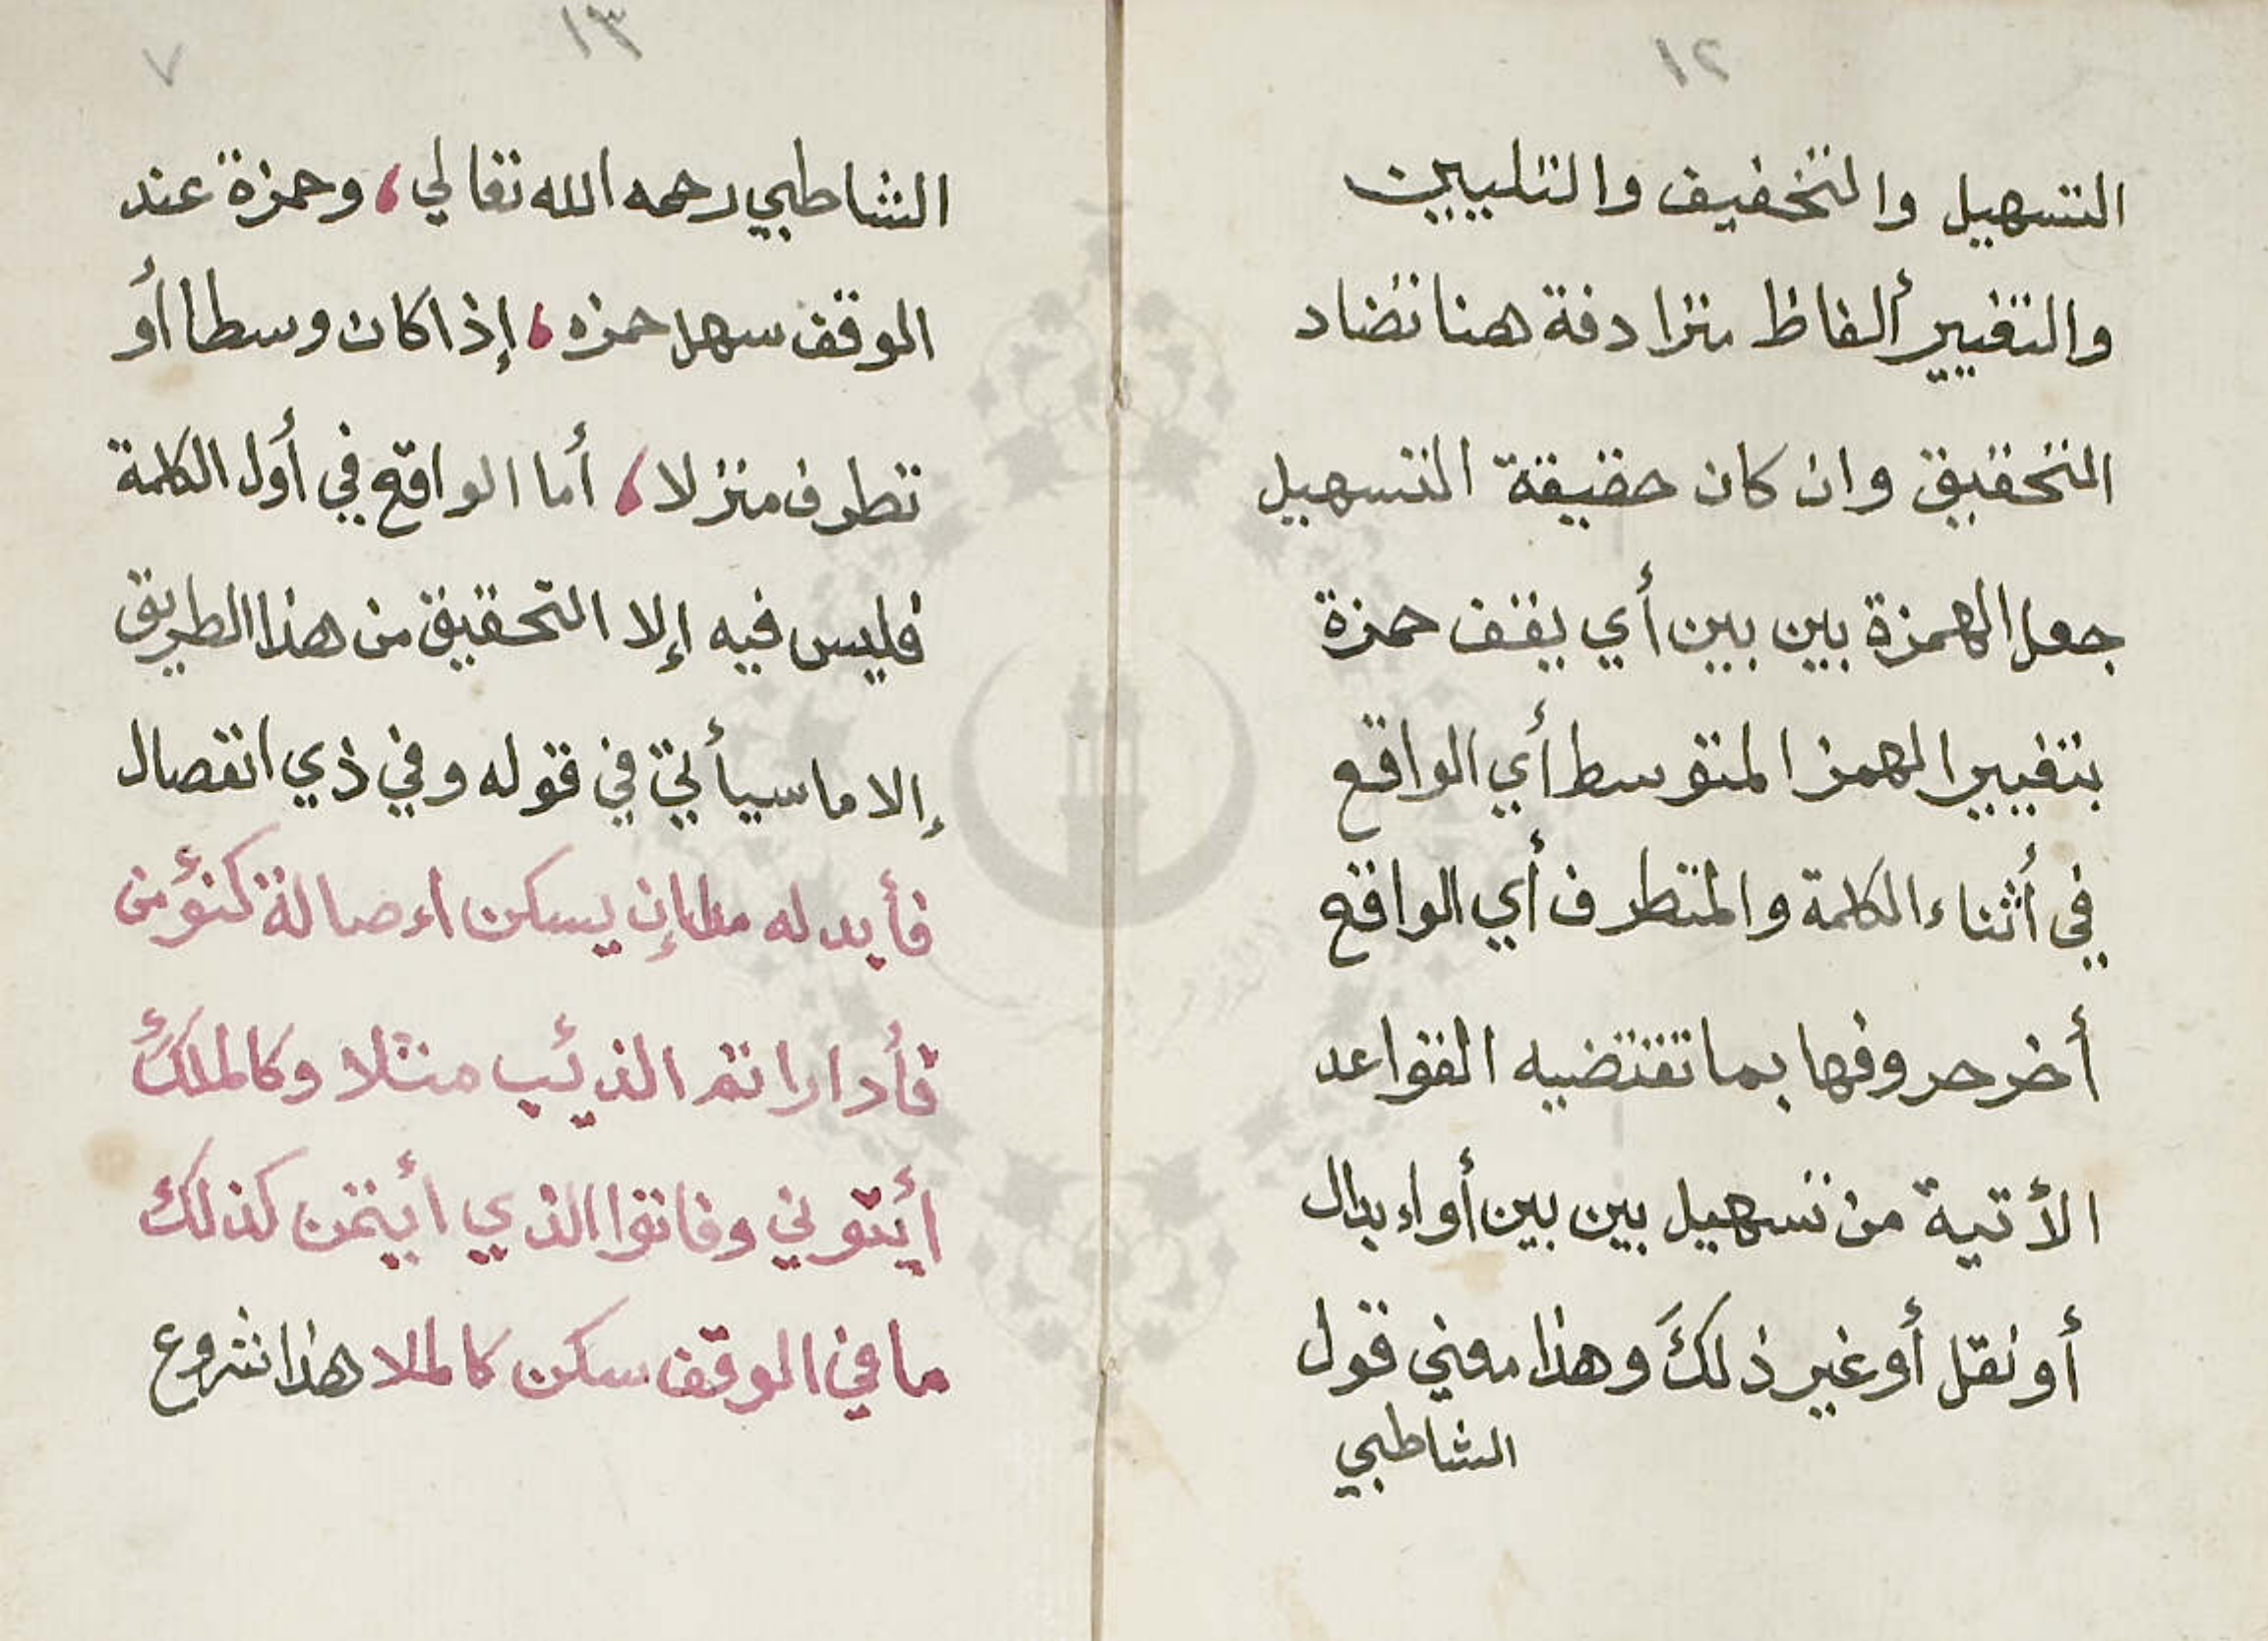 ١٢
التسهيل والتخفيف والتليين
والتغيير ألفاظ مترادفة هنا تضاد
التحقيق وان كان حقيقة التسهيل
جعل الهمزة بين بين أي يقف حمزة
بتغيير الهمز المتوسط أي الواقع
في أثناء الكلمة والمتطرف أي الواقع
أخر حروفها بما تقتضيه القواعد
الأتية من تسهيل بين بين أو اءبدال
أو نقل أو غير ذلك وهذا معني قول
الشاطبي
١٣
٧
الشاطبي رحمه الله تعالي، وحمزة عند
الوقف سهل همزه، إذا كان وسطا أو
تطرف منزلا، أما الواقع في أول الكلمة
فليس فيه إلا التحقيق من هذا الطريق
إلا ما سيأتي في قوله وفي ذي انفصال
فأبدله مدا إن يسكن اءصالة كنؤمن
فأدارأتم الذئب مثلا وكالملك
أيتوني وفاتوا الذي أيتمن كذلك
ما في الوقف سكن كالملا هذا شروع